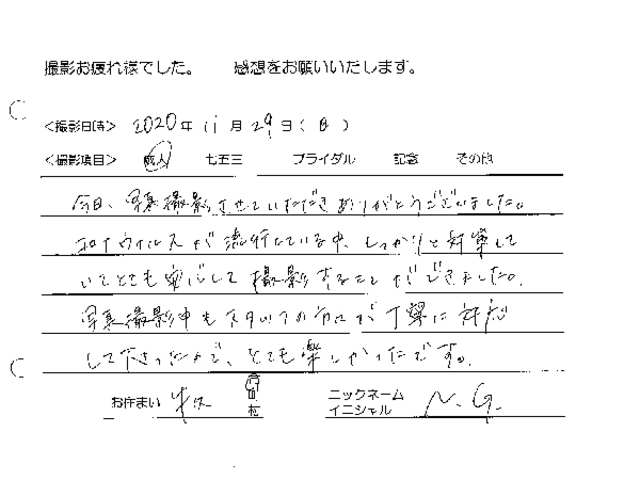 撮影お疲れ様でした。 感想をお願いいたします。
<撮影日時> 2020年 11月 29日 (日)
<撮影項目> 成人 七五三 ブライダル 記念 その他
今日、写真撮影させていただきありがとうございました。
コロナウイルスが流行している中、しっかりと対策して
いてとても安心して撮影することができました。
写真撮影中もスタッフの方が丁寧に対応
して下さったので、とても楽しかったです。
お住まい 牛久 市町村
ニックネーム
イニシャル N.G.